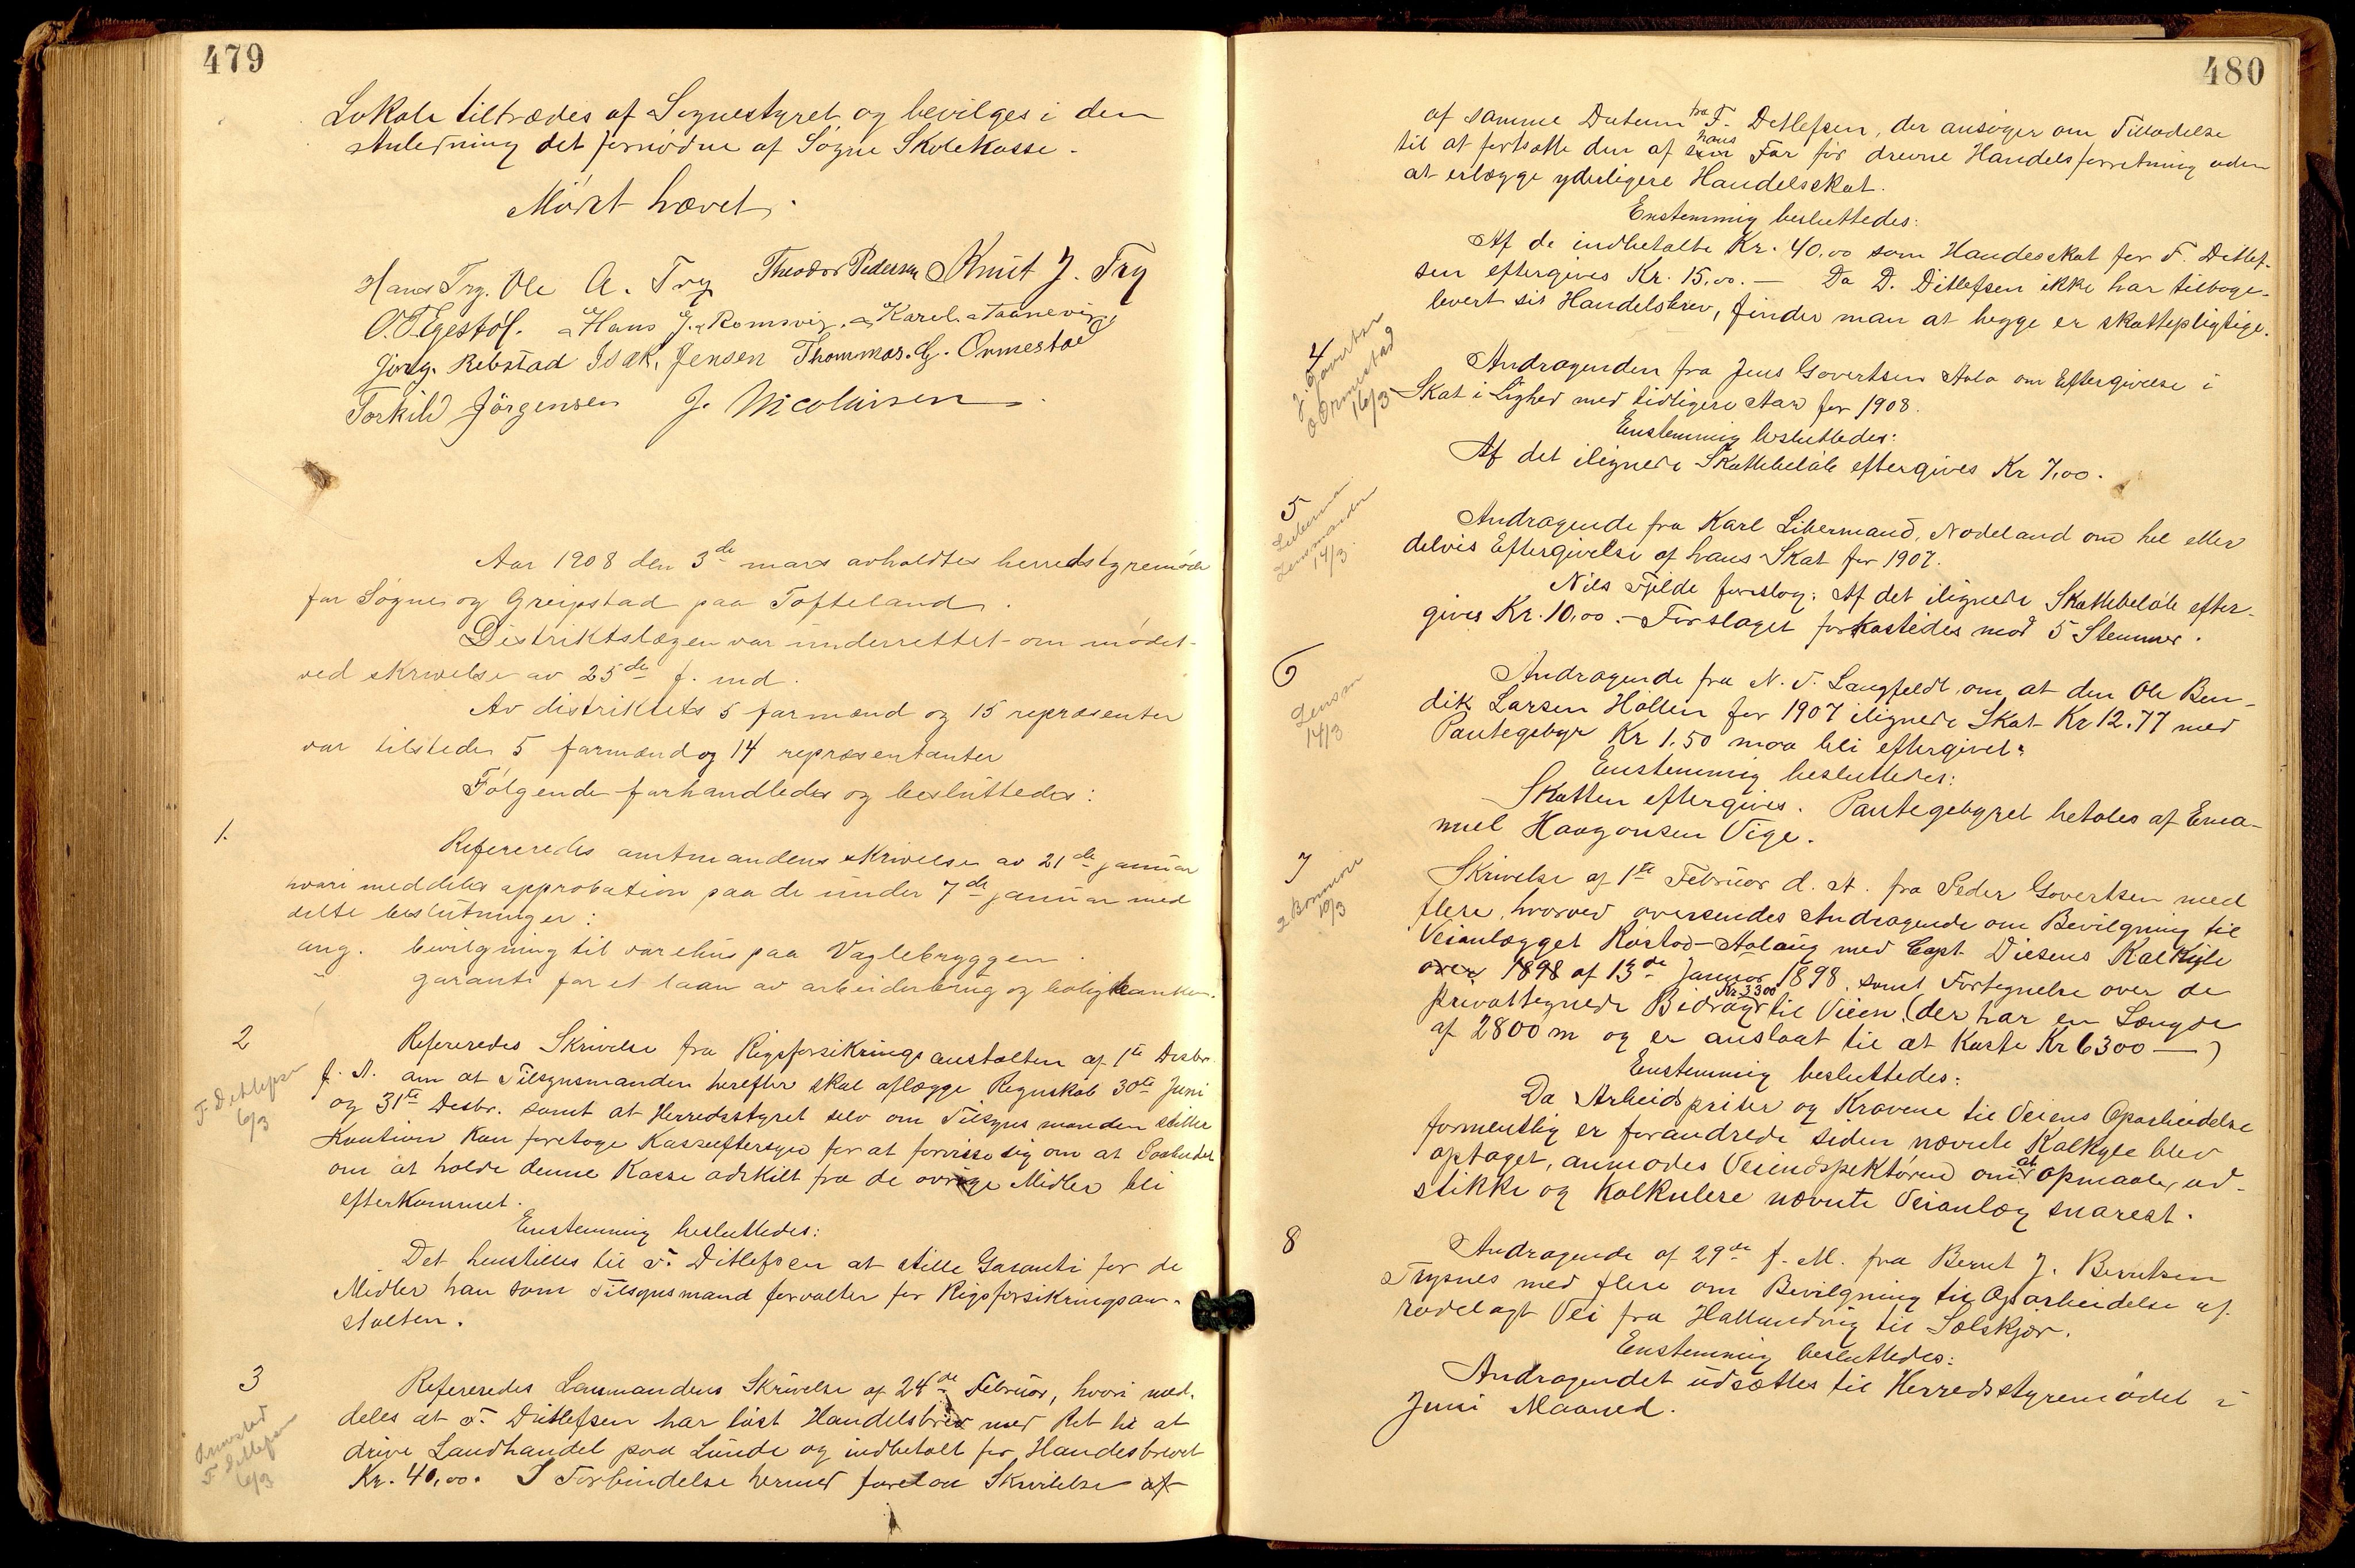 479
Lokale tiltrædes af Sognestyret og bevilges i den
Anledning det fornødne af Søgne Skolekasse.
Mødet hævet.
Hans Try. Ole A. Try Theodor Pedersen Knut J. Try
O. T. Egestøl. Hans J. Romsvig. Karel Taanevig
Jørg. Rebstad Isak. Jensen Thommas. G. Ormestad
Torkild Jörgensen J. Nicolaisen
Aar 1908 den 3de mars avholdtes herredstyremøde
for Søgne og Greipstad paa Tofteland.
Distriktslægen var underrettet om mødet
ved skrivelse av 25de f. md.
Av distriktets 5 formænd og 15 repræsenter
var tilstede 5 formænd og 14 repræsentanter
Følgende forhandledes og besluttedes:
1.
Refereredes amtmandens skrivelse av 21de januar
hvori meddeles approbation paa de under 7de januar med
delte beslutninger:
ang. bevilgning til varehus paa Vaglebryggen.
" garanti for et laan av arbeiderbrug og boligbanken.
2
F. Ditlefsen
6/3
Refereredes Skrivelse fra Rigsforsikringsanstalten af 1ste Desbr.
f. A. om at Tilsynsmanden herefter skal aflægge Regnskab 30te Juni
og 31te Desbr. samt at Herredsstyret selv om Tilsynsmanden stiller
Kaution kan foretage Kasseeftersyn for at forvisse sig om at Paabudet
om at holde denne Kasse adskilt fra de øvrige Midler bli
efterkommet.
Enstemmig besluttedes:
Det henstilles til F. Ditlefsen at stille Garanti for de
Midler han som Tilsynsmand forvalter for Rigsforsikringsan-
stalten.
3
F. Ditlefsen
6/3
Refereredes Lensmandens Skrivelse af 24de Februar, hvori med-
deles at F. Ditlefsen har løst Handelsbrev med Ret til at
drive Landhandel paa Lunde og indbetalt for Handesbrevet
Kr. 40,00. I Forbindelse hermed forelaa Skrivelse af
480
af samme Datum fra F. Detlefsen, der ansøger om Tilladelse
til at fortsætte den af hans Far før drevne Handelsforretning uden
at erlægge yderligere Handelsskat.
Enstemmig besluttedes:
Af de indbetalte Kr. 40,00 som Handesskat for F. Detlef-
sen eftergives Kr. 15,00. — Da D. Ditlefsen ikke har tilbage-
levert sit Handelsbrev, finder man at begge er skattepligtige.
4
J. Govertsen
O Ormestad
16/3
Andragenden fra Jens Govertsen Aalo om Eftergivelse i
Skat i Lighed med tidligere Aar for 1908.
Enstemmig besluttedes:
Af det ilignede Skattebeløb eftergives Kr 7,00.
5
14/3
Andragende fra Karl Libermand, Nodeland om hel eller
delvis Eftergivelse af hans Skat for 1907.
Nils Fjelde foreslog: Af det ilignede Skattebeløb efter-
gives Kr. 10,00. — Forslaget forkastedes mod 5 Stemmer.
6
Lensm
14/3
Andragende fra N. T. Langfeldt, om at den Ole Ben-
dik Larsen Höllen for 1907 ilignede Skat Kr 12.77 med
Pantegebyr Kr 1.50 maa bli eftergivet.
Enstemmig besluttedes:
Skatten eftergives. Pantegebyret betales af Ema-
nuel Haagonsen Vige.
7
10/3
Skrivelse af 1ste Februar d. A. fra Peder Govertsen med
flere, hvorved oversendes Andragende om Bevilgning til
Veianlægget Røstad-Aalaug med Capt. Diesens Kalkyle
over 1898 af 13de Januar 1898, samt Fortegnelse over de
privattegnede Bidrag Kr. 3300 til Veien. (der har en Længde
af 2800 m og er anslaat til at koste Kr 6300 —)
Enstemmig besluttedes:
Da Arbeidspriser og Kravene til Veiens Oparbeidelse
formentlig er forandrede siden nævnte Kalkyle blev
optaget, anmodes Veiinspektøren om at opmaale, ud-
stikke og Kalkulere nævnte Veianlæg snarest.
8
Andragende af 29de f. M. fra Bernt J. Berntsen
Trysnes med flere om Bevilgning til Oparbeidelse af
rodelagt Vei fra Hallandvig til Salskjær.
Enstemmig besluttedes:
Andragendet udsættes til Herredsstyremødet i
Juni Maaned.